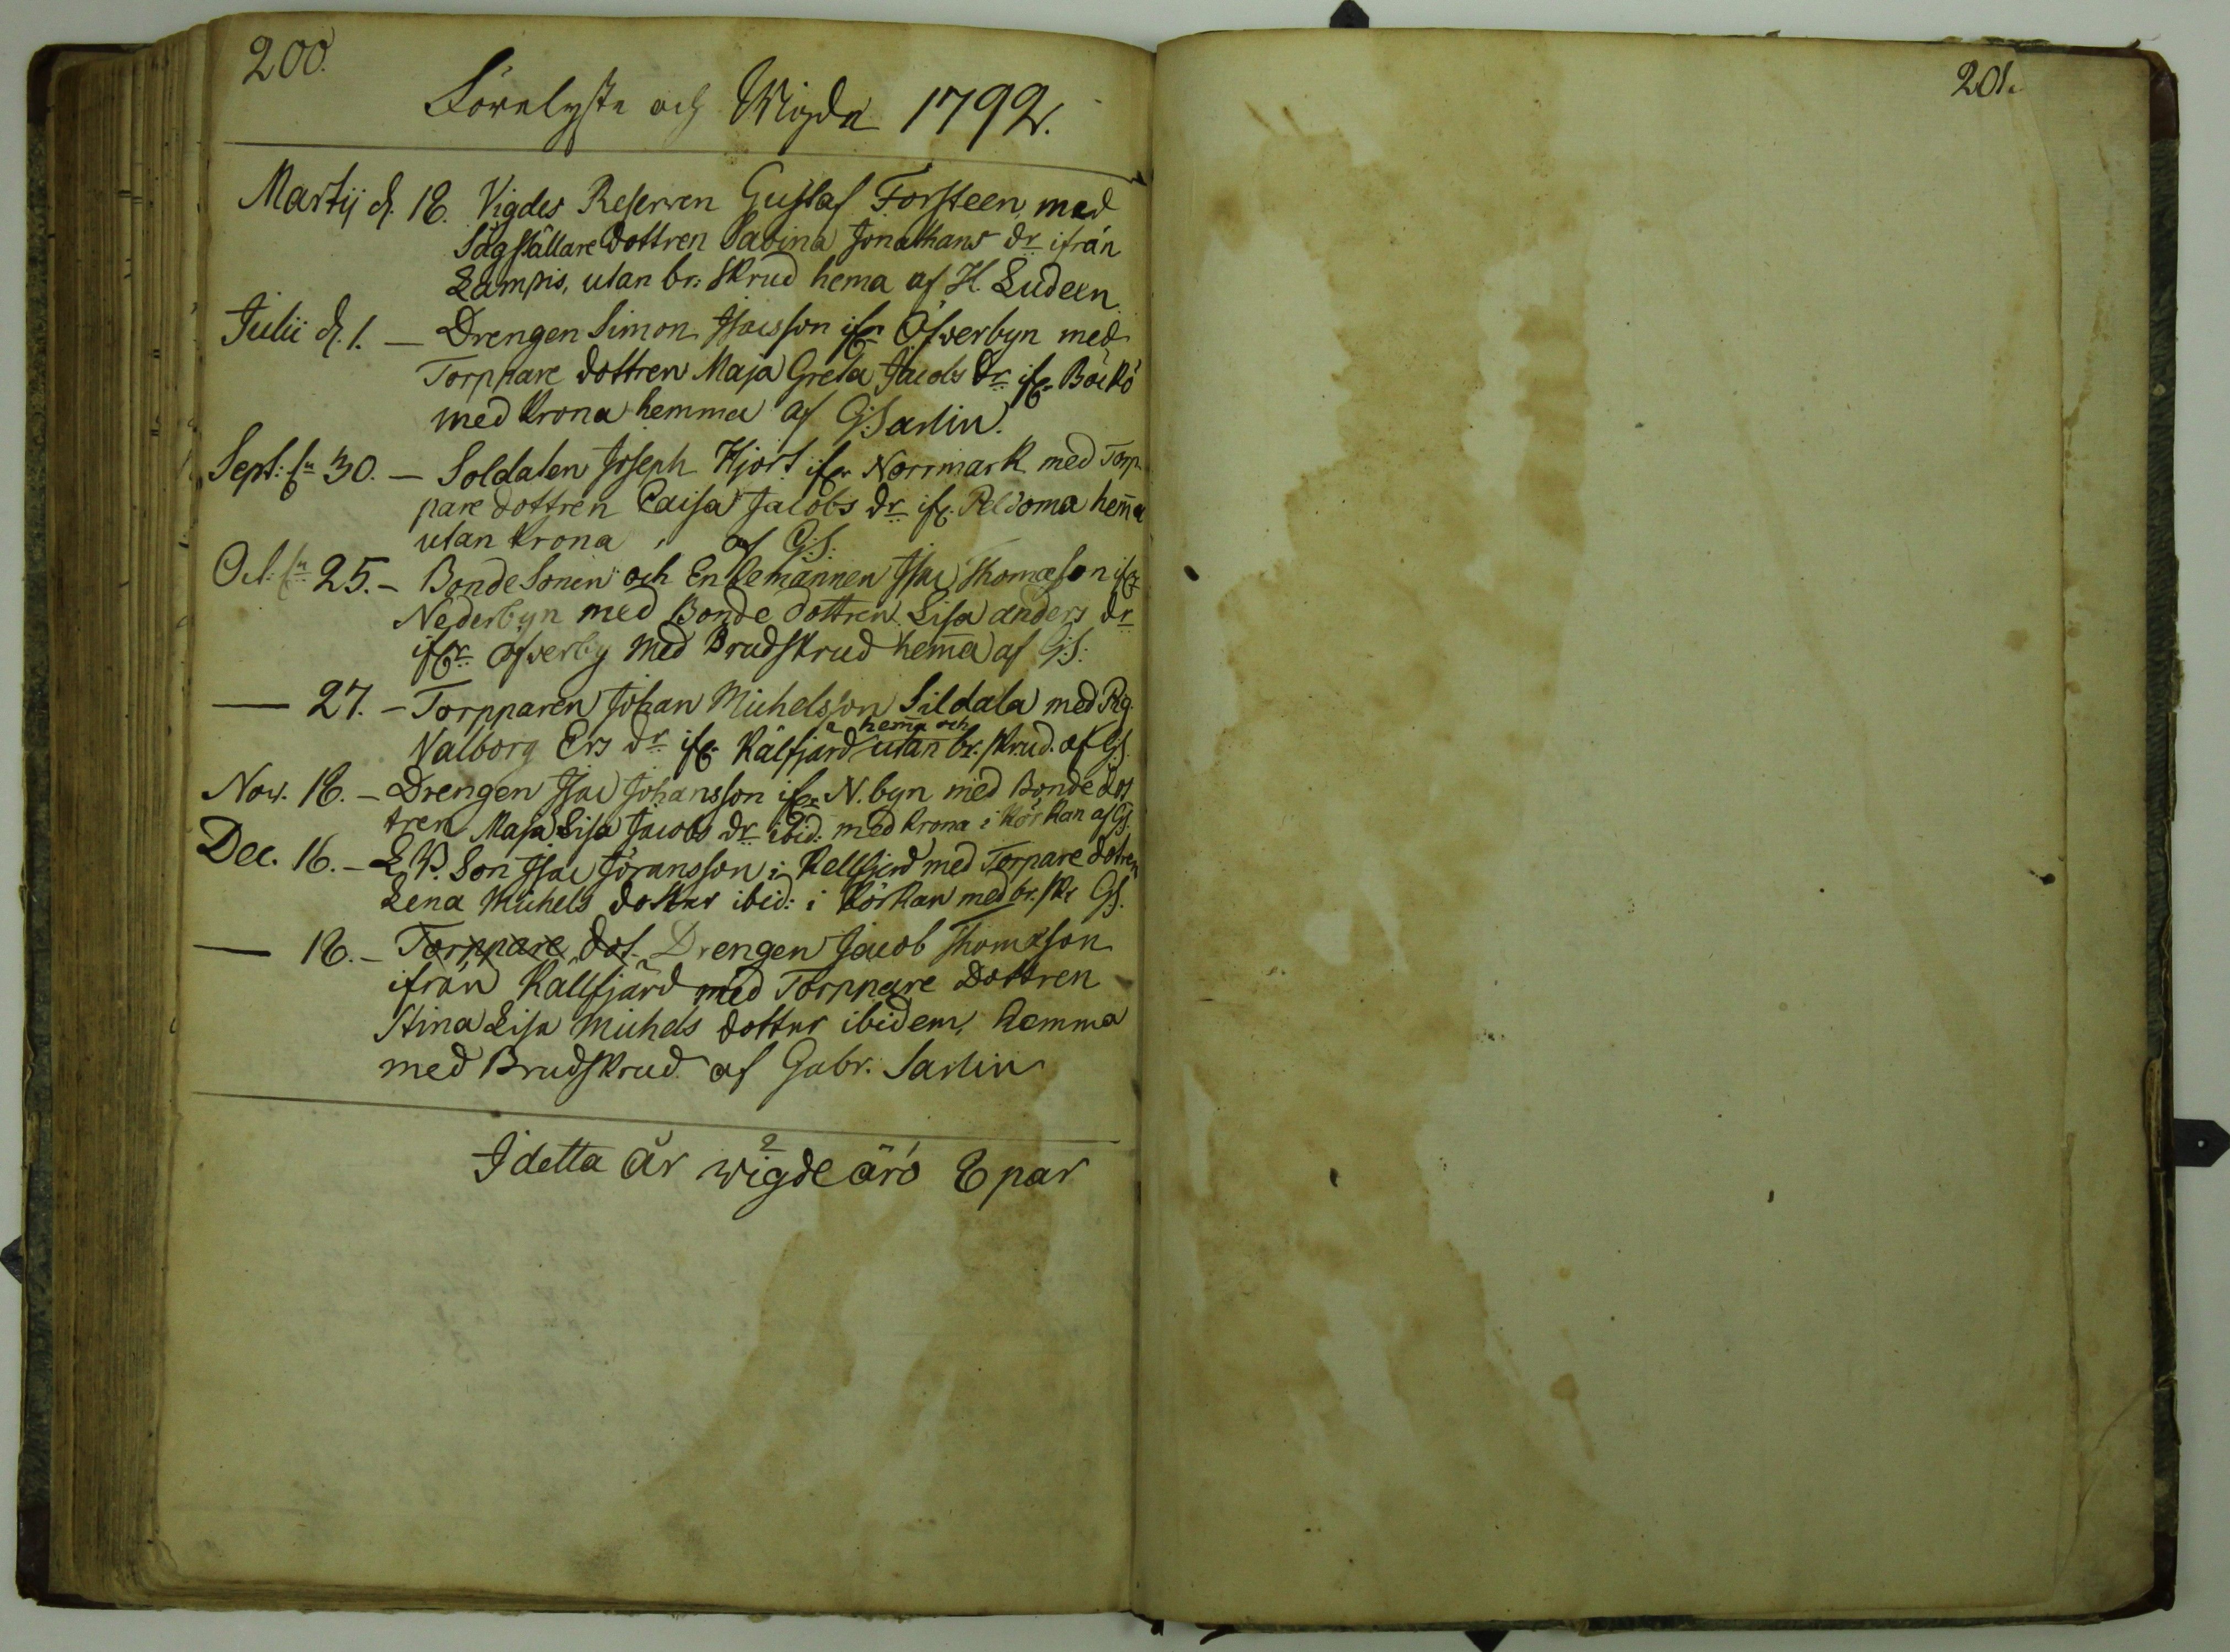 200.
201.
Förelyste och Wigda 1792.
Martij d. 18. Vigdes Reserven Gustaf Forsteen, med
Sågställare dottren Sabina Jonathans dr ifrån
Lampis, utan br: skrud hema af H. Ludeen
Julii d. 1. — Drengen Simon Isacsson ifr Öfverbyn med
Torppare dottren Maja Greta Jacobs dr ifr Böckö
med krona hemma af G: Sarlin.
Sept: 30. — Soldaten Joseph Hjort ifr Norrmark med Torp
pare dottren Caisa Jacobs dr ifr. Peldoma hem̄a
utan krona, af G:S:
Oct: 25. — Bonde Sonen och Enklemannen Isac Thomæson ifr
Nederbyn med Bonde dottren Lisa anders dr
ifr öfverby med Brudskrud hem̄a af G:S:
— 27. — Torpparen Johan Michelsson Sildala med Pig.
hem̄a och
Valborg Ers dr ifr. Kälfjärd utan br. skrud. af G:S.
Nov. 18. — Drengen Isac Johansson ifr N. byn med Bonde dot
tren Maja Lisa Jacobs dr ibid: med krona i Körkan af GS.
Dec. 16. — Son Isac Jöransson i Kellfjerd med Torpare dotren
Lena Michels dotter ibid: i Körkan med br. skr G.S.
— 18. — Torppare dot. Drengen Jacob Thomæson
ifrån Kallfjärd med Torppare Dottren
Stina Lisa Michels dotter ibidem, hemma
med Brudskrud af Gabr. Sarlin
I detta år wigde äro 8 par